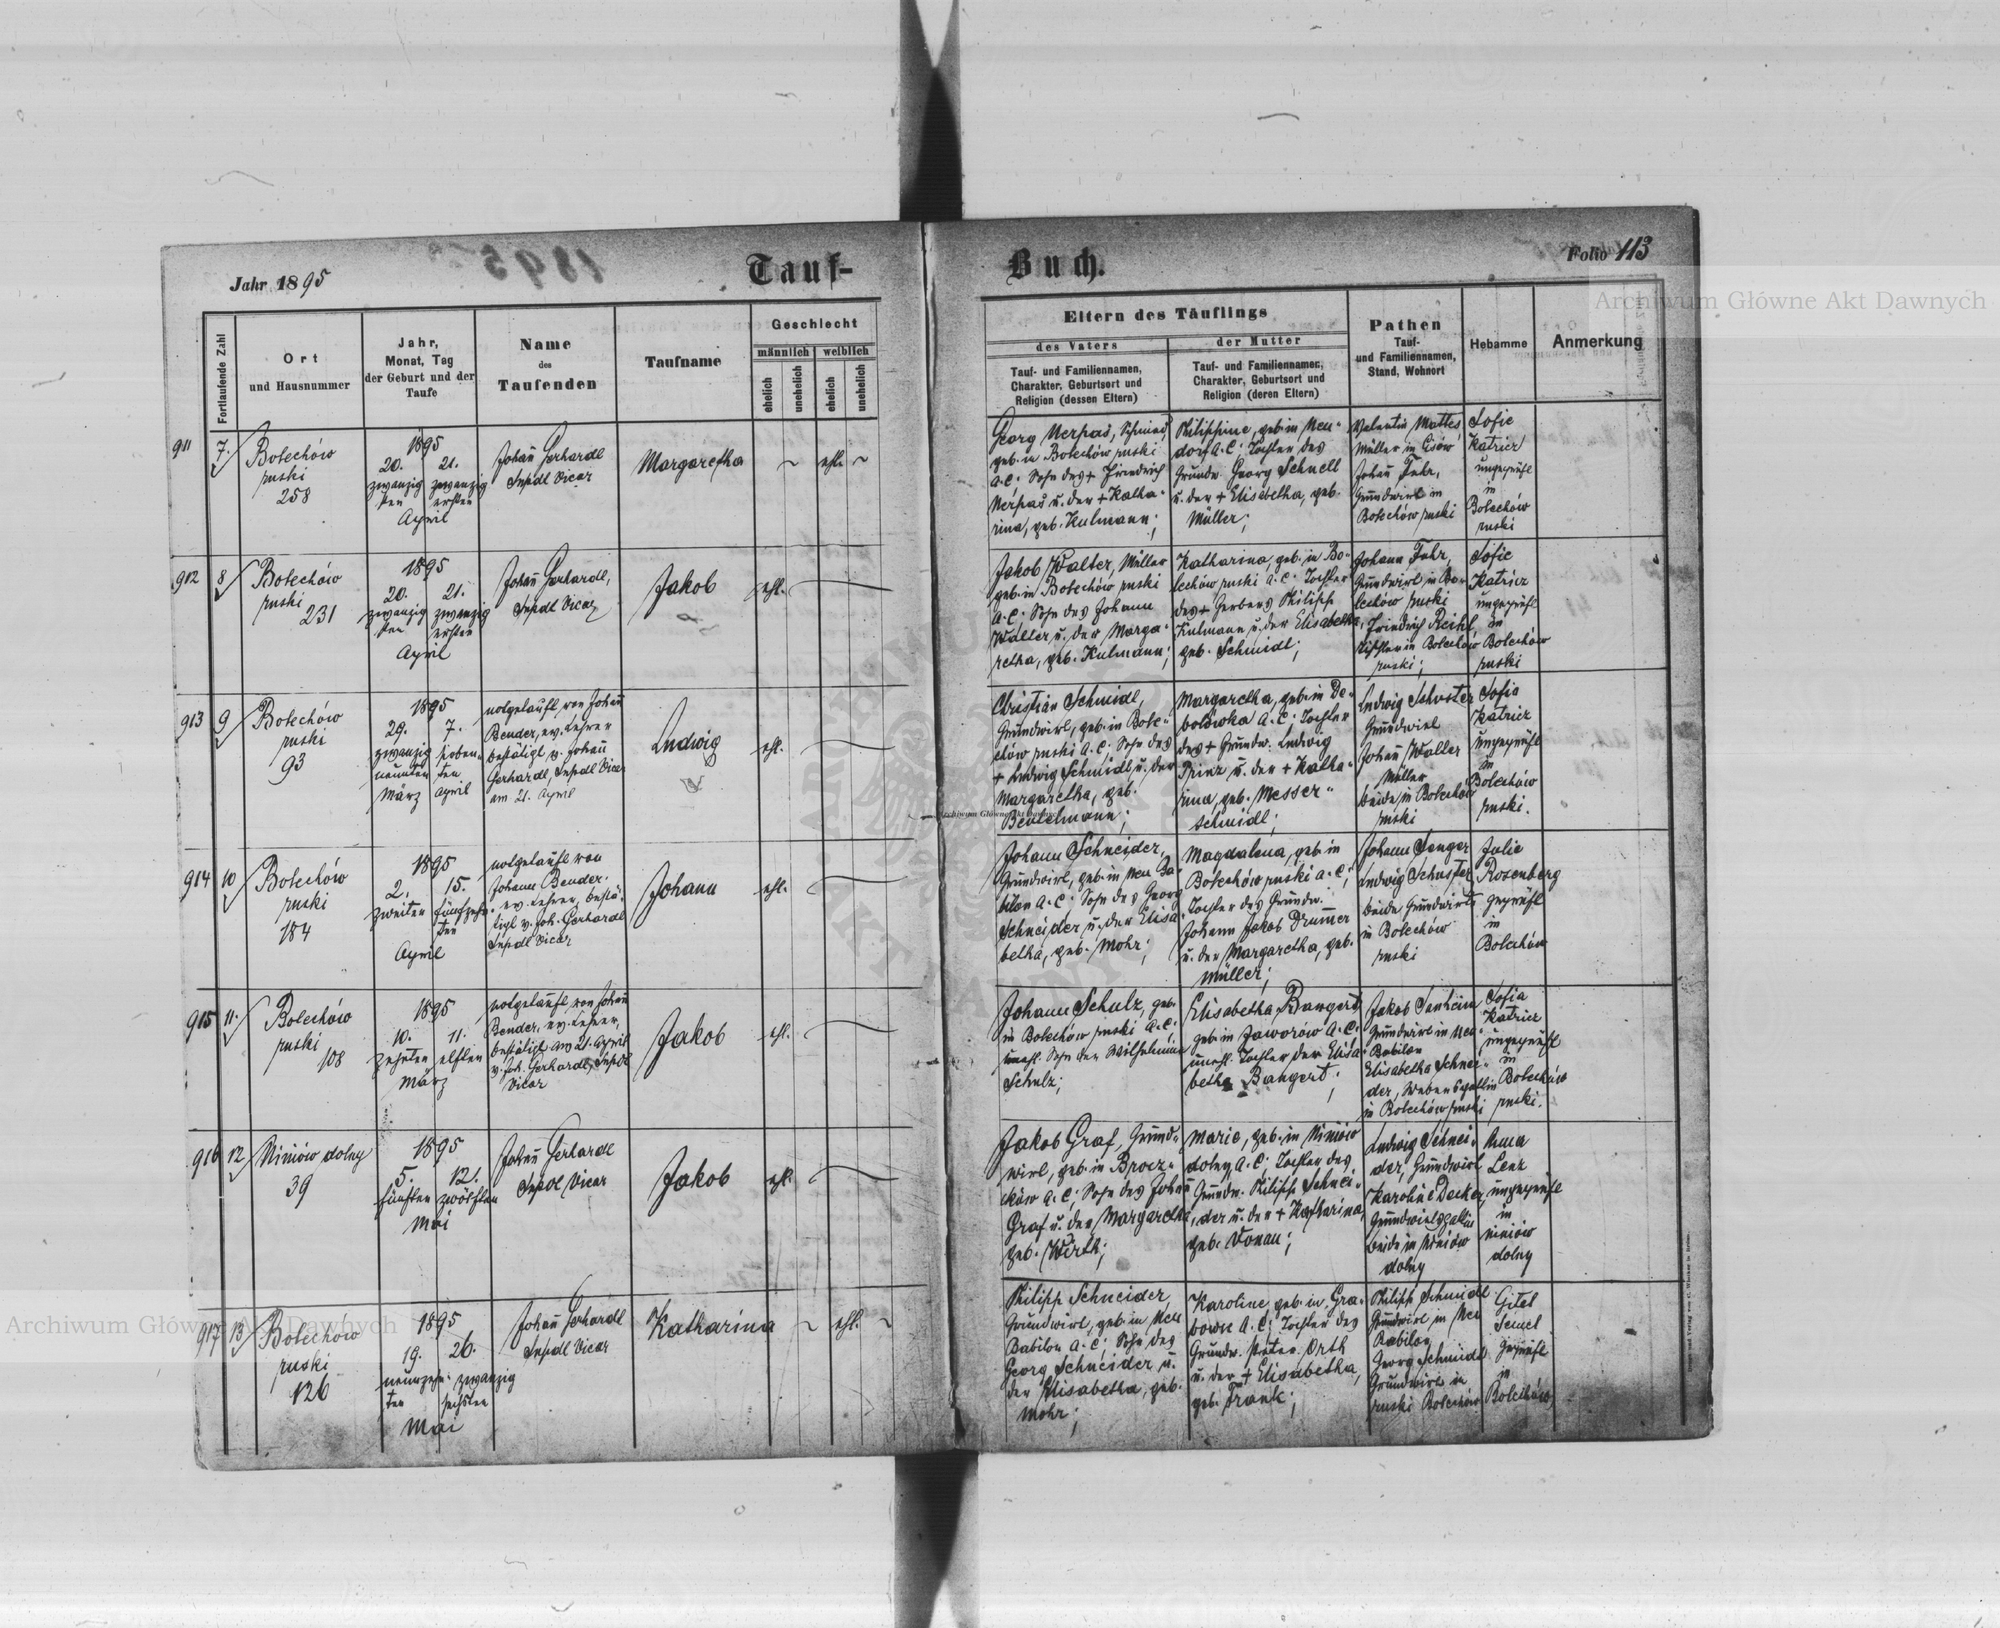 Jahr 1895
Tauf-
Buch.
Folio 113
Archiwum Główne Akt Dawnych
Fortlaufende Zahl
Ort
und Hausnummer
Jahr,
Monat, Tag
der Geburt und der
Taufe
Name
des
Taufenden
Taufname
Geschlecht
männlich
weiblich
ehelich
unehelich
ehelich
unehelich
Eltern des Täuflings
des Vaters
der Mutter
Tauf- und Familiennamen,
Charakter, Geburtsort und
Religion (dessen Eltern)
Tauf- und Familiennamen,
Charakter, Geburtsort und
Religion (deren Eltern)
Pathen
Tauf-
und Familiennamen,
Stand, Wohnort
Hebamme
Anmerkung
911
7.
Bolechów
ruski
258
1895
20. 21.
zwanzig zwanzig
sten ersten
April
Johañ Gerhardt
Supdl Vicar
Margaretha
ehl.
Georg Nerpas, Schmied,
geb. in Bolechów ruski
A.C.; Sohn des + Friedrich
Nerpas u. der + Katha-
rina, geb. Kulmann;
Philippine, geb. in Neu-
dorf A.C.; Tochter des
Grundw. Georg Schnell
u. der + Elisabetha, geb.
Müller;
Valentin Mattes
Müller in Cisów
Johañ Fuhr,
Grundwirt in
Bolechów ruski
Sofie
Katricz
ungeprüft
in
Bolechów
ruski
912
8
Bolechów
ruski
231
1895
20. 21.
zwanzig zwanzig
sten ersten
April
Johañ Gerhardt,
Supdl Vicar
Jakob
ehl.
Jakob Walter, Müller
geb. in Bolechów ruski
A.C.; Sohn des Johann
Walter u. der Marga-
retha, geb. Kulmann;
Katharina, geb. in Bo-
lechów ruski A.C.; Tochter
des + Gerbers Philipp
Kulmann u. der Elisabetha,
geb. Schmidt;
Johann Fuhr,
Grundwirt in Bo-
lechów ruski
Friedrich Reichl
Tischler in Bolechów
ruski;
Sofie
Katricz
ungeprüft
in
Bolechów
ruski
913
9
Bolechów
ruski
93
1895
29. 7.
zwanzig sieben-
neunten ten
März April
notgetauft von Johañ
Bender, ev. Lehrer
bestätigt v. Johañ
Gerhardt, Supdl Vicar
am 21. April
Ludwig
ehl.
Christian Schmidt,
Grundwirt, geb. in Bole-
chów ruski A.C.; Sohn des
+ Ludwig Schmidt u. der
Margaretha, geb.
Beutelmann;
Margaretha, geb. in De-
bolówka A.C.; Tochter
des + Grundw. Ludwig
Prinz u. der + Katha-
rina, geb. Messer-
schmidt;
Ludwig Schuster
Grundwirt
Johañ Walter
Müller
beide in Bolechów
ruski
Sofia
Katricz
ungeprüft
in
Bolechów
ruski.
Archiwum Główne Akt Dawnych
914
10
Bolechów
ruski
184
1895
2. 15.
zweiten fünfzehn-
ten
April
notgetauft von
Johann Bender.
ev. Lehrer, bestä-
tigt v. Joh. Gerhardt
Supdl Vicar
Johann
ehl.
Johann Schneider,
Grundwirt, geb. in Neu Ba-
bilon A.C.; Sohn des Georg
Schneider u. der Elisa-
betha, geb. Mohr;
Magdalena, geb. in
Bolechów ruski A.C.;
Tochter des Grundw.
Johann Jakob Drumer
u. der Margaretha, geb.
Müller;
Johann Senger
Ludwig Schuster
beide Grundwirte
in Bolechów
ruski
Julie
Rosenberg
geprüft
in
Bolechów
915
11.
Bolechów
ruski
108
1895
10. 11.
zehnten elften
März
notgetauft von Johañ
Bender, ev. Lehrer,
bestätigt am 21. April
v. Joh. Gerhardt, Supdl
Vicar
Jakob
ehl.
Johann Schulz, geb.
in Bolechów ruski A.C.
unehl. Sohn der Wilhelmine
Schulz;
Elisabetha Bangert
geb. in Jaworów A.C.
unehl. Tochter der Elisa-
betha Bangert;
Grundwirt in Neu-
Babilon
Elisabetha Schnei-
der, Webersgattin
in Bolechów ruski
Sofia
Katricz
ungeprüft
in
Bolechów
ruski.
916
12
Niniów dolny
39
1895
5. 12.
fünften zwölften
Mai
Johañ Gerhardt
Supdl Vicar
Jakob
ehl.
Jakob Graf, Grund-
wirt, geb. in Brocz-
ków A.C.; Sohn des Johañ
Graf u. der Margaretha,
geb. Wirth;
Marie, geb. in Niniów
dolny A.C.; Tochter des
Grundw. Philipp Schnei-
der u. der + Katharina,
geb. Donau;
Ludwig Schnei-
der, Grundwirt
Karoline Decker,
Grundwirtsgattin
beide in Niniów
dolny
Anna
Lenz
ungeprüft
in
Niniów
dolny
917
13
Bolechów
ruski
126
1895
19. 26.
neunzehn- zwanzig
ten sechsten
Mai
Johañ Gerhardt
Supdl Vicar
Katharina
ehl.
Philipp Schneider
Grundwirt, geb. in Neu
Babilon A.C.; Sohn des
Georg Schneider u.
der Elisabetha, geb.
Mohr;
Karoline, geb. in Gra-
bowu A.C.; Tochter des
Grundw. Peter Orth
u. der + Elisabetha,
geb. Frank;
Philipp Schmidt
Grundwirt in Neu
Babilon
Georg Schmidt
Grundwirt in
ruski Bolechów
Gitel
geprüft
in
Bolechów
Archiwum Główne Akt Dawnych